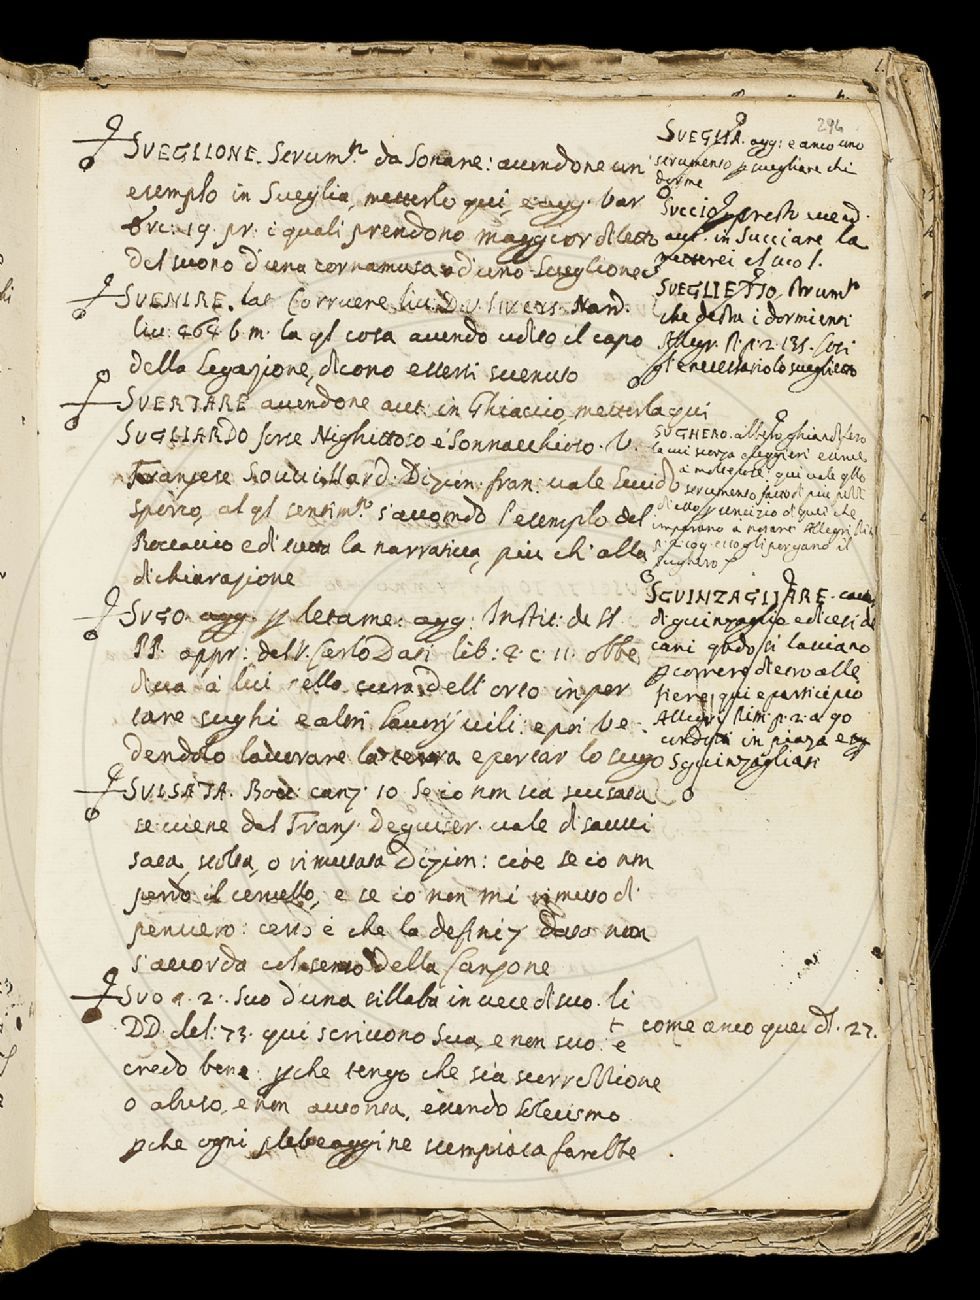 296
SVEGLIONE. Strum.to da Sonare: avendone un
esemplo in Sveglia, metterlo qui, e agg. Var
19. pr. i quali prendono maggior diletto
del suono d'una cornamusa o d'uno Sveglione
SVENIRE. lat. Corruere liv. D. V. Nard.
liv. 464 6. m. la ql cosa avendo udito il capo
della legazione, dicono essersi svenuto
SVERTARE avendone aut. in Ghiaccio metterla qui
SUGLIARDO forse Nighittoso e Sonnacchioso. V.
Franzese Souillard: Dizion: fran: vale Sucido
sporco, al ql sentim.to s'accomoda l'esemplo del
Boccaccio e di tutta la narrativa, più ch'alla
dichiarazione
SUGO agg. p letame: agg: Instit: de SS.
PP. appr: del V. Carlo Dati lib: 4. c. 11. obbe
diva a lui nella cura dell'orto in por
tare sughi e altri lavorij vili: e poi Ve
dendolo lavorare la terra e portar lo sugo
SVISATA. Bocc: canz. 10 Se io non sia svisata
se viene dal Franz. Deguiser. vale disavvi
sata, stolta, o rimutata Dizion: cioè se io non
perdo il cervello, e se io non mi rimuto di
pensiero: certo è che la definiz. data non
s'accorda col senso della Canzone
SUO §. 2. Suo d'una sillaba in vece di suo. li
DD. del: 73. qui scrivono Sua, e non suo. e
credo bene: pche tengo che sia scorrezzione
o abuso, e non accorsa, essendo solecismo
pche ogni plebeaggine scempiata sarebbe
SVEGLIA. agg: e anco uno
strumento p svegliare chi
dorme
SUCCIO, presto vend.
aut. in Succiare la
metterei al suo l.
SVEGLIETTO, Strum.to
che desta i dormienti
Allegr. R. p. 2. 135. Così
gl'è necessario lo sveglietto
SUGHERO. albero ghiandifero
la cui scorza e leggieri e
a molte cose, qui vale qllo
strumento fatto di più pezzi
d'esso p servizio di quei che
imparano a notare Allegr. Rim
ecco gli pergano il
sughero
SGUINZAGLIARE. cavar
di guinzaglio e dicesi de
cani qndo si lasciano
p correre dietro alle
fiere, qui e participio
Allegri Rim. p. 2. a 90
in piazza e
Sguinzagliati
t come anco quei d. 27.